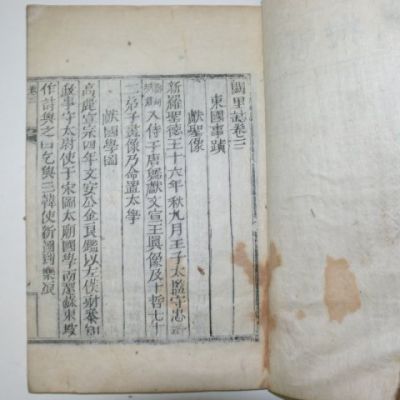 闕里誌卷
東國事蹟
獻聖像
新羅聖德王十六年秋九月王子太監守忠
入侍于唐還獻文宣王眞像及十哲七十
二弟子畫像乃命置太學
獻國學圖
高麗宣宗四年文安公金良鑑以左僕射叅知
政事守太尉使于宋圖太廟國學而還蘇東坡
作詩與之曰乞與三韓使新圖到樂浪